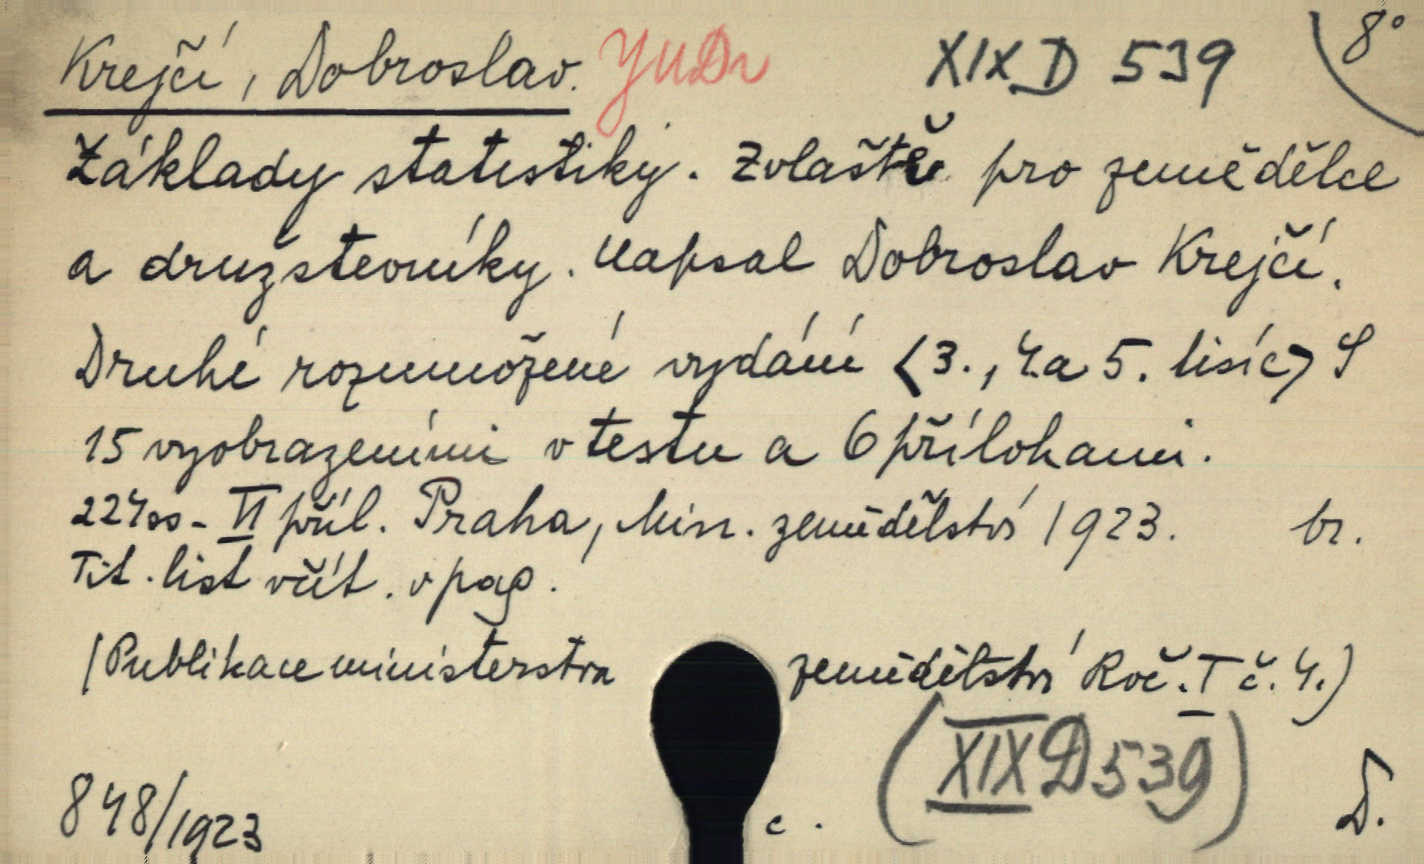 Krejčí, Dobroslav. JUDr XIX D 539 8°
Základy statistiky. Zvláště pro zemědělce
a družstevníky. Napsal Dobroslav Krejčí.
Druhé rozmnožené vydání <3., 4. a 5. tisíc> S
15 vyobrazeními v testu a 6 přílohami.
224 ss - VI příl. Praha, Min. zemědělství 1923. br.
Tit. list včít. v pag.
(Publikace ministerstva zemědělství Roč. I č. 4.)
(XIX D 539)
848/1923 c. D.